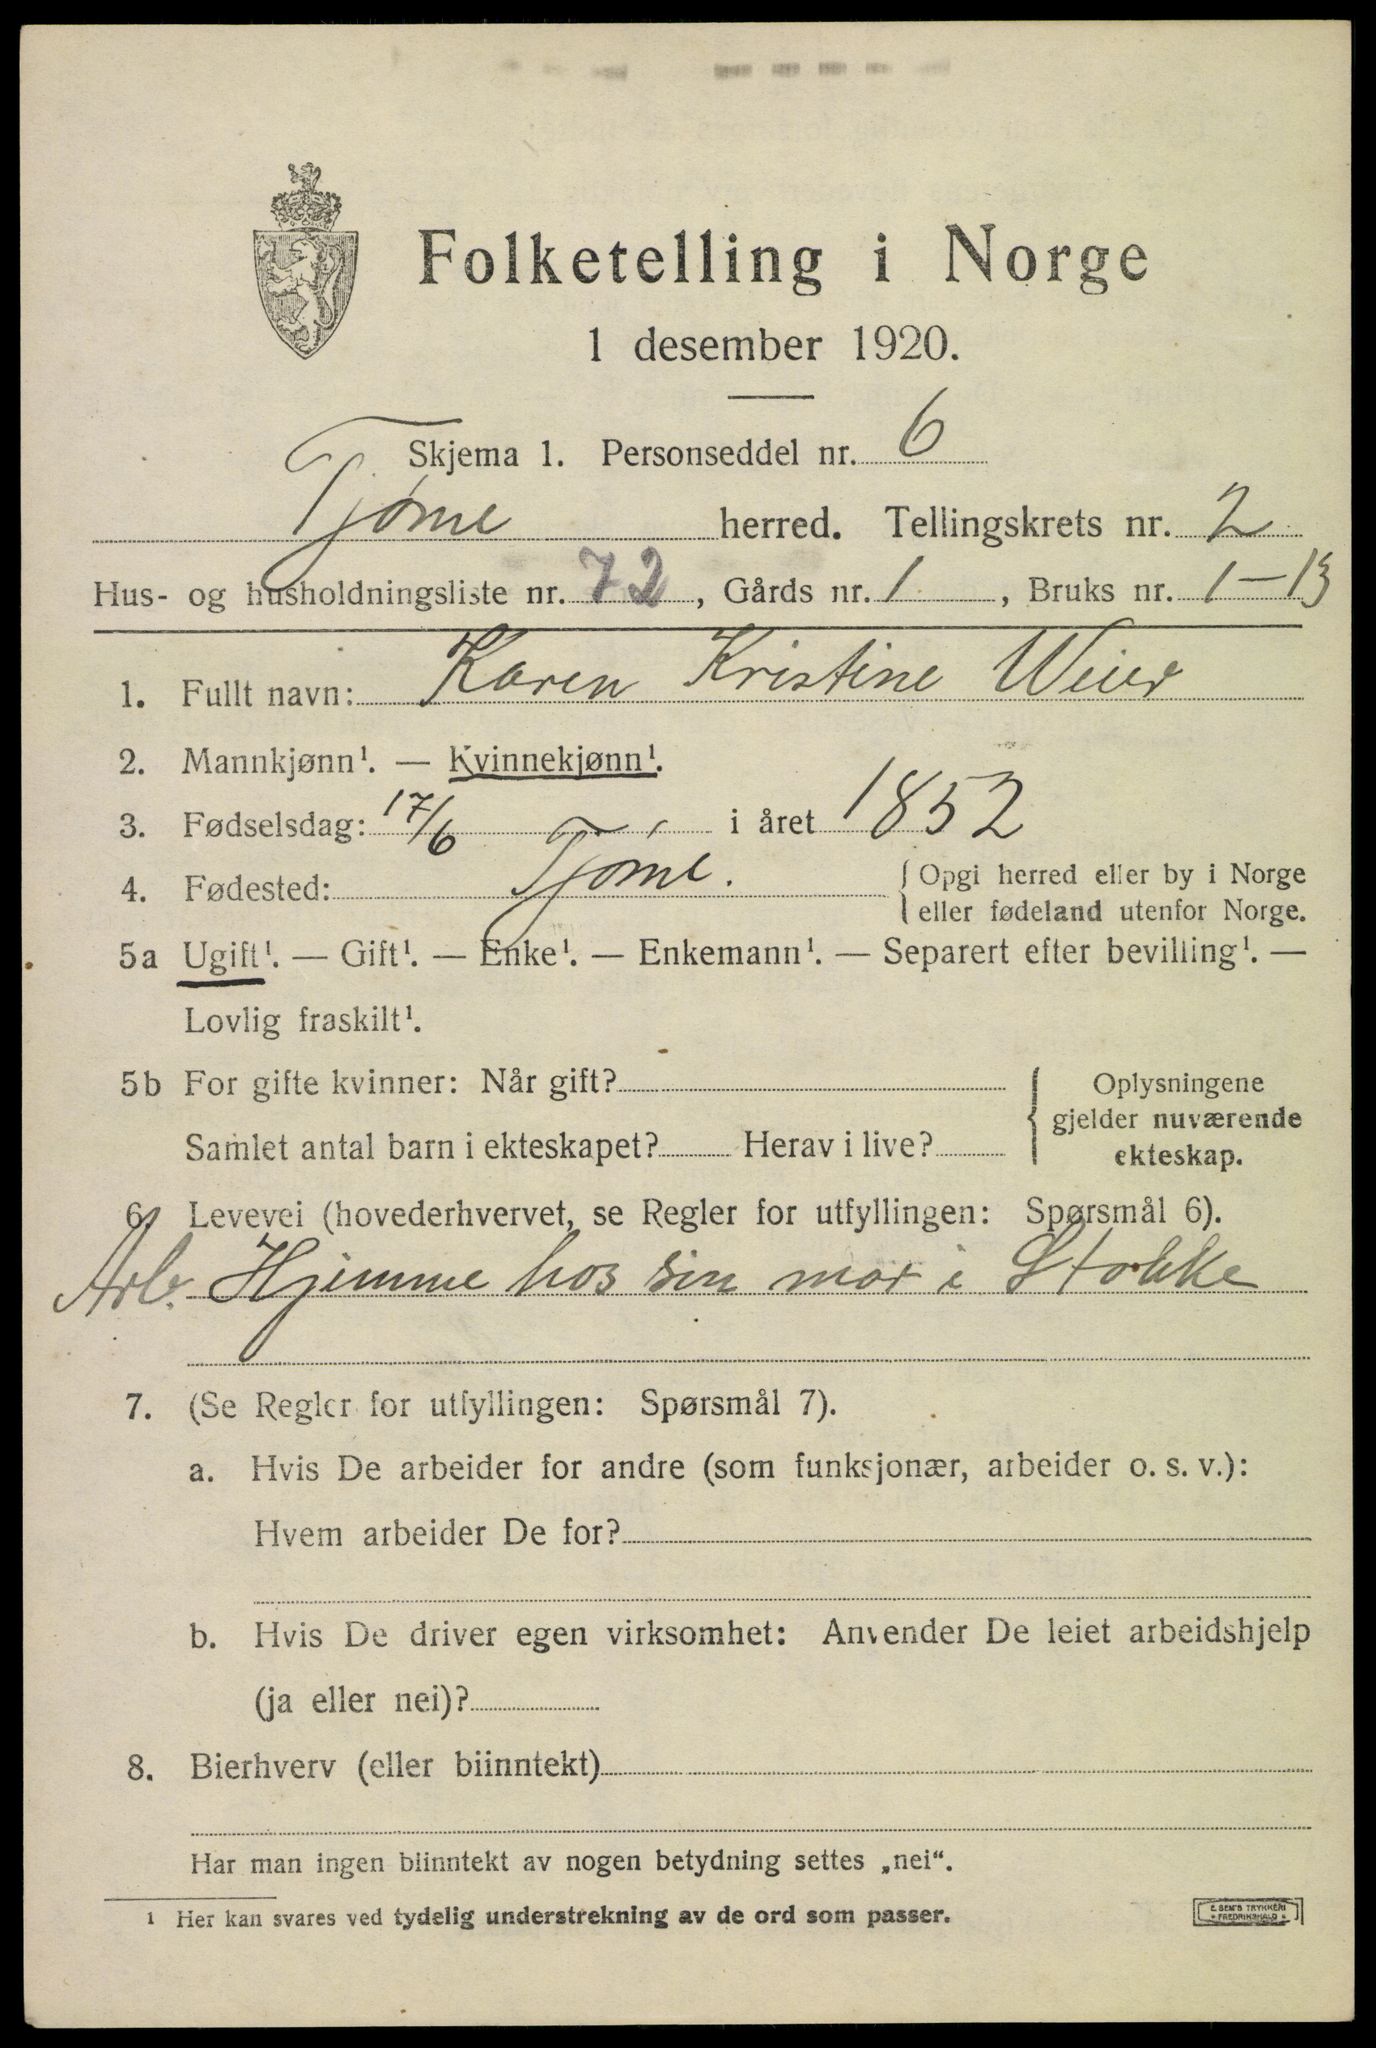 Folketelling i Norge
1 desember 1920.
Skjema 1. Personseddel nr. 6
Tjøme herred. Tellingskrets nr. 2
Hus- og husholdningsliste nr. 72, Gårds nr. 1, Bruks nr. 1-13
1. Fullt navn: Karen Kristine Weier
2. Mannkjønn¹. — Kvinnekjønn¹.
3. Fødselsdag: 17/6 i året 1852
4. Fødested: Tjøme. { Opgi herred eller by i Norge
eller fødeland utenfor Norge.
5a Ugift¹. — Gift¹. — Enke¹. — Enkemann¹. — Separert efter bevilling¹. —
Lovlig fraskilt¹.
5b For gifte kvinner: Når gift? { Oplysningene
gjelder nuværende
Samlet antal barn i ekteskapet? Herav i live? ekteskap.
6. Levevei (hovederhvervet, se Regler for utfyllingen: Spørsmål 6).
Arb. Hjemme hos sin mor i Stokke
7. (Se Regler for utfyllingen: Spørsmål 7).
a. Hvis De arbeider for andre (som funksjonær, arbeider o. s. v.):
Hvem arbeider De for?
b. Hvis De driver egen virksomhet: Anvender De leiet arbeidshjelp
(ja eller nei)?
8. Bierhverv (eller biinntekt)
Har man ingen biinntekt av nogen betydning settes „nei“.
¹ Her kan svares ved tydelig understrekning av de ord som passer.
E. SEM'S TRYKKERI
• FREDRIKSHALD •